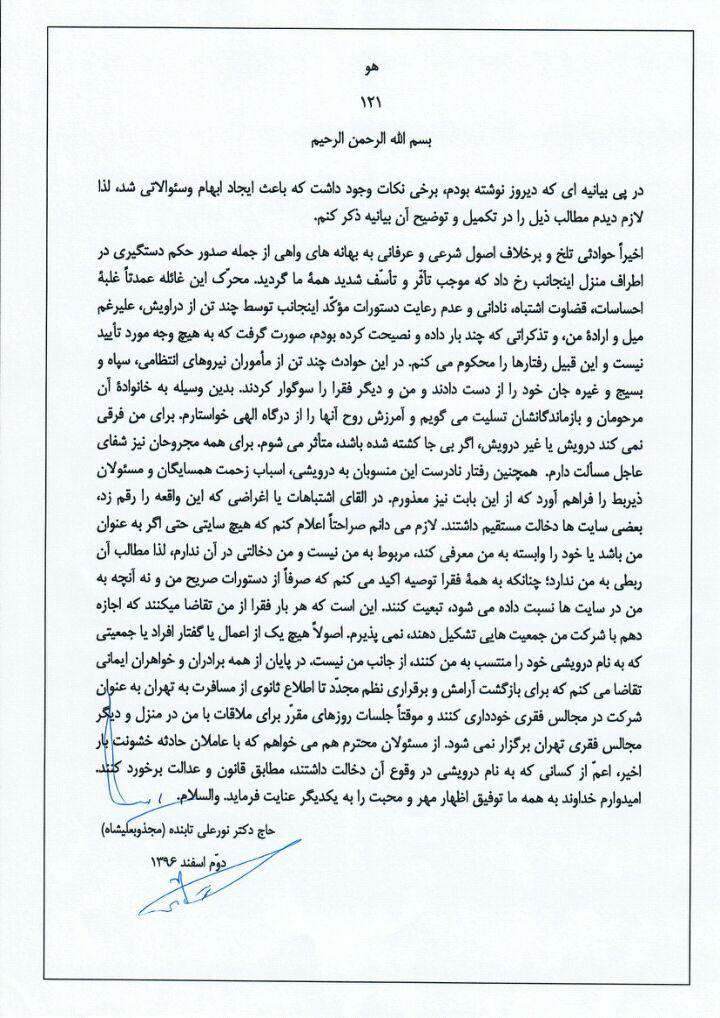 هو
۱۲۱
بسم الله الرحمن الرحیم
در پی بیانیه ای که دیروز نوشته بودم، برخی نکات وجود داشت که باعث ایجاد ابهام وسئوالاتی شد، لذا
لازم دیدم مطالب ذیل را در تکمیل و توضیح آن بیانیه ذکر کنم.
اخیراً حوادثی تلخ و برخلاف اصول شرعی و عرفانی به بهانه های واهی از جمله صدور حکم دستگیری در
اطراف منزل اینجانب رخ داد که موجب تأثّر و تأسّف شدید همهٔ ما گردید. محرّک این غائله عمدتاً غلبهٔ
احساسات، قضاوت اشتباه، نادانی و عدم رعایت دستورات مؤکّد اینجانب توسط چند تن از دراویش، علیرغم
میل و ارادهٔ من، و تذکراتی که چند بار داده و نصیحت کرده بودم، صورت گرفت که به هیچ وجه مورد تأیید
نیست و این قبیل رفتارها را محکوم می کنم. در این حوادث چند تن از مأموران نیروهای انتظامی، سپاه و
بسیج و غیره جان خود را از دست دادند و من و دیگر فقرا را سوگوار کردند. بدین وسیله به خانوادهٔ آن
مرحومان و بازماندگانشان تسلیت می گویم و آمرزش روح آنها را از درگاه الهی خواستارم. برای من فرقی
نمی کند درویش یا غیر درویش، اگر بی جا کشته شده باشد، متأثر می شوم. برای همه مجروحان نیز شفای
عاجل مسألت دارم. همچنین رفتار نادرست این منسوبان به درویشی، اسباب زحمت همسایگان و مسئولان
ذیربط را فراهم آورد که از این بابت نیز معذورم. در القای اشتباهات یا اغراضی که این واقعه را رقم زد،
بعضی سایت ها دخالت مستقیم داشتند. لازم می دانم صراحتاً اعلام کنم که هیچ سایتی حتی اگر به عنوان
من باشد یا خود را وابسته به من معرفی کند، مربوط به من نیست و من دخالتی در آن ندارم، لذا مطالب آن
ربطی به من ندارد؛ چنانکه به همهٔ فقرا توصیه اکید می کنم که صرفاً از دستورات صریح من و نه آنچه به
من در سایت ها نسبت داده می شود، تبعیت کنند. این است که هر بار فقرا از من تقاضا میکنند که اجازه
دهم با شرکت من جمعیت هایی تشکیل دهند، نمی پذیرم. اصولاً هیچ یک از اعمال یا گفتار افراد یا جمعیتی
که به نام درویشی خود را منتسب به من کنند، از جانب من نیست. در پایان از همه برادران و خواهران ایمانی
تقاضا می کنم که برای بازگشت آرامش و برقراری نظم مجدّد تا اطلاع ثانوی از مسافرت به تهران به عنوان
شرکت در مجالس فقری خودداری کنند و موقتاً جلسات روزهای مقرّر برای ملاقات با من در منزل و دیگر
مجالس فقری تهران برگزار نمی شود. از مسئولان محترم هم می خواهم که با عاملان حادثه خشونت بار
اخیر، اعمّ از کسانی که به نام درویشی در وقوع آن دخالت داشتند، مطابق قانون و عدالت برخورد کنند.
امیدوارم خداوند به همه ما توفیق اظهار مهر و محبت را به یکدیگر عنایت فرماید. والسلام.
حاج دکتر نورعلی تابنده (مجذوبعلیشاه)
دوّم اسفند ۱۳۹۶